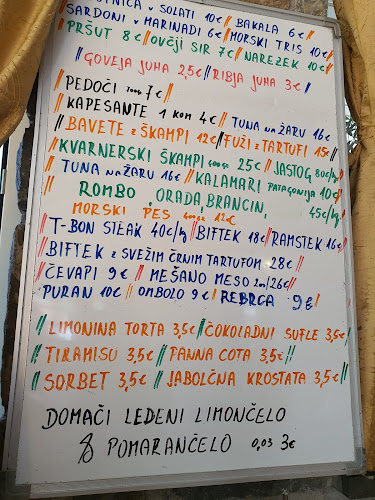 V SOLATI 10€ // BAKALA 6€ //
SARDONI V MARINADI 6€ // MORSKI TRIS 10€ //
PRŠUT 8€ // OVČJI SIR 7€ // NAREZEK 10€ //
// GOVEJA JUHA 2,5€ // RIBJA JUHA 3€ //
// PEDOČI 7€ //
// KAPESANTE 1 KOM 4€ // TUNA NA ŽARU 16€
// BAVETE Z ŠKAMPI 12€ // FUŽI Z TARTUFI 15€ //
// KVARNERSKI ŠKAMPI 25€ // JASTOG 80€/kg //
// TUNA NA ŽARU 16€ // KALAMARI PATAGONIJA 10€ //
// ROMBO, ORADA, BRANCIN, 45€/kg //
MORSKI PES 12€
// T-BON STEAK 40€/kg // BIFTEK 18€ // RAMSTEK 16€ //
// BIFTEK Z SVEŽIM ČRNIM TARTUFOM 28€ //
// ČEVAPI 9€ // MEŠANO MESO 26€ //
PURAN 10€ // OMBOLO 9€ // REBRCA 9€ //
// LIMONINA TORTA 3,5€ // ČOKOLADNI SUFLE 3,5€ //
// TIRAMISU 3,5€ // PANNA COTA 3,5€ //
// SORBET 3,5€ // JABOLČNA KROSTATA 3,5€ //
DOMAČI LEDENI LIMONČELO
& POMARANČELO 0,03 3€